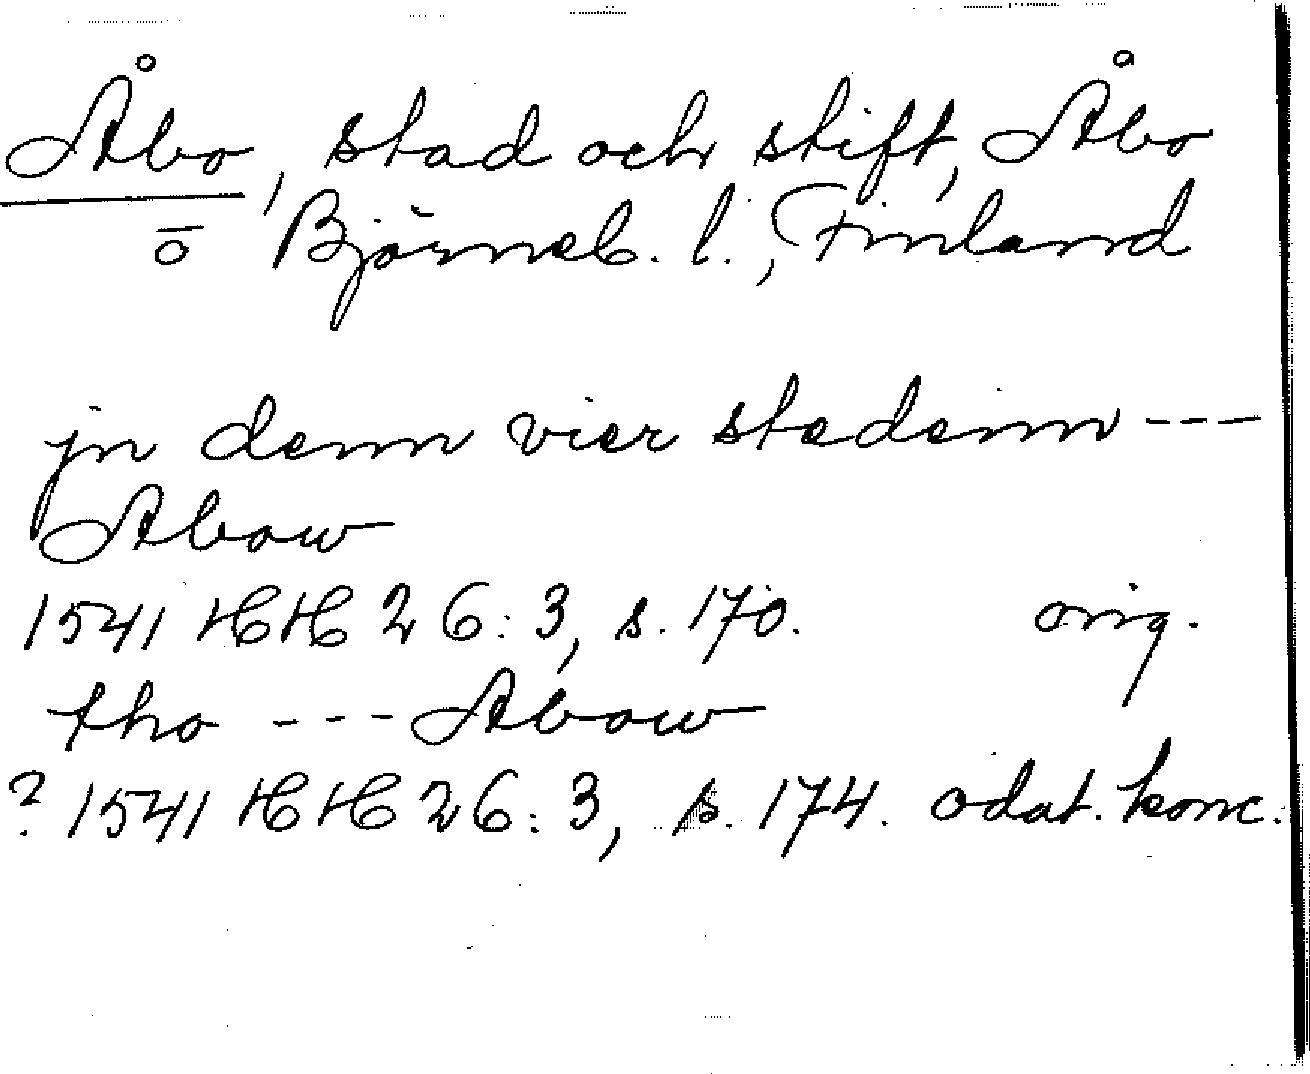 Åbo, stad och stift, Åbo
ō Björneb. l., Finland
jn denn vier stedenn ---
Abow
1541 HH 26:3, s. 170. orig.
tho --- Abow
? 1541 HH 26:3, s. 174. odat. konc.